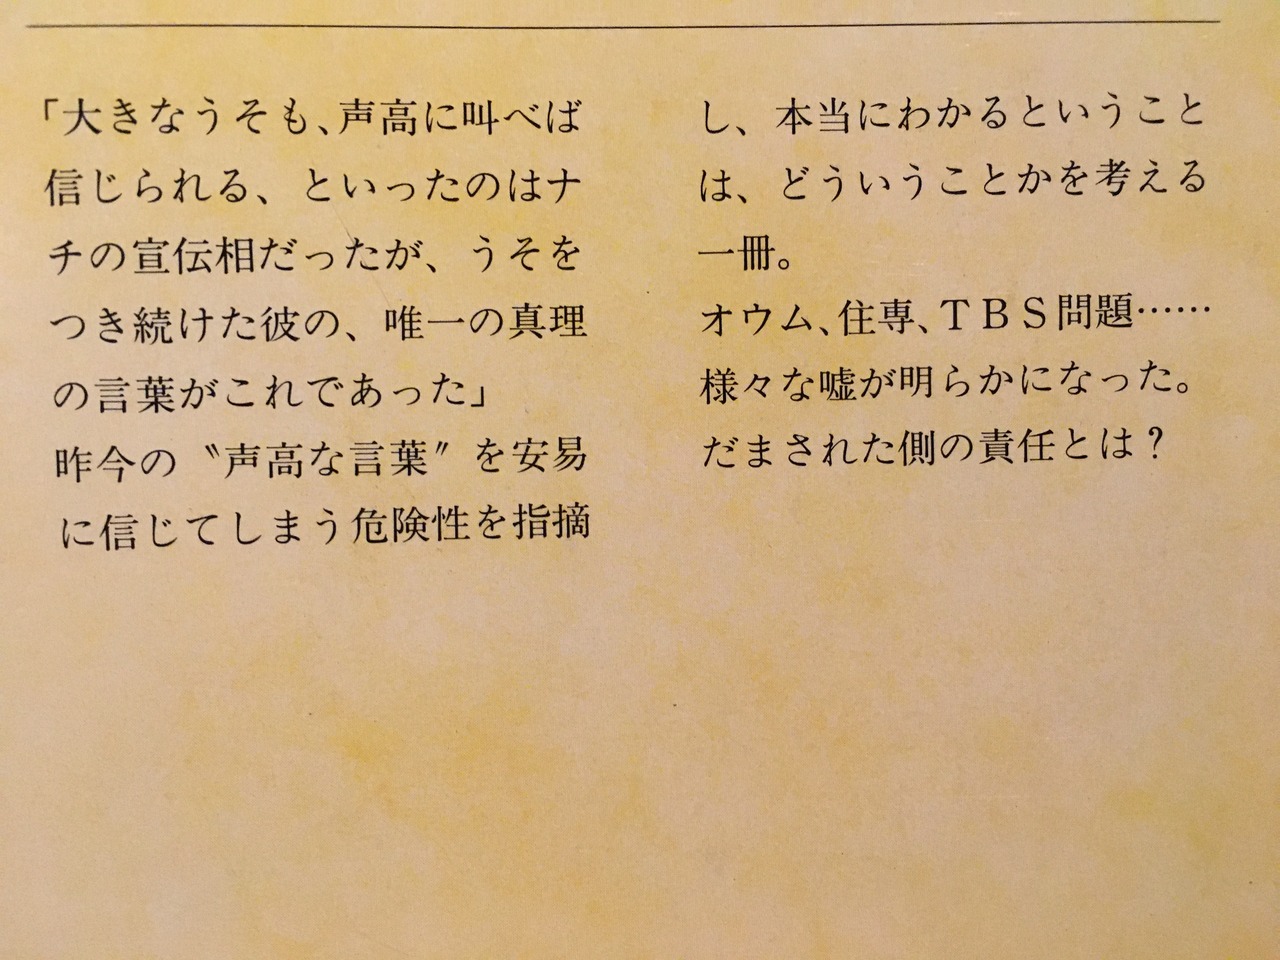 「大きなうそも、声高に叫べば
信じられる、といったのはナ
チの宣伝相だったが、うそを
つき続けた彼の、唯一の真理
の言葉がこれであった」
昨今の〝声高な言葉〞を安易
に信じてしまう危険性を指摘
し、本当にわかるということ
は、どういうことかを考える
一冊。
オウム、住専、ＴＢＳ問題……
様々な嘘が明らかになった。
だまされた側の責任とは？